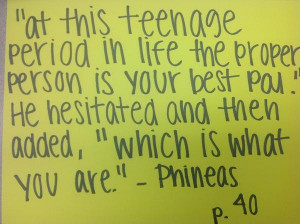 "at this teenage
period in life the proper
person is your best pal."
He hesitated and then
added, "which is what
you are." - Phineas
p. 40